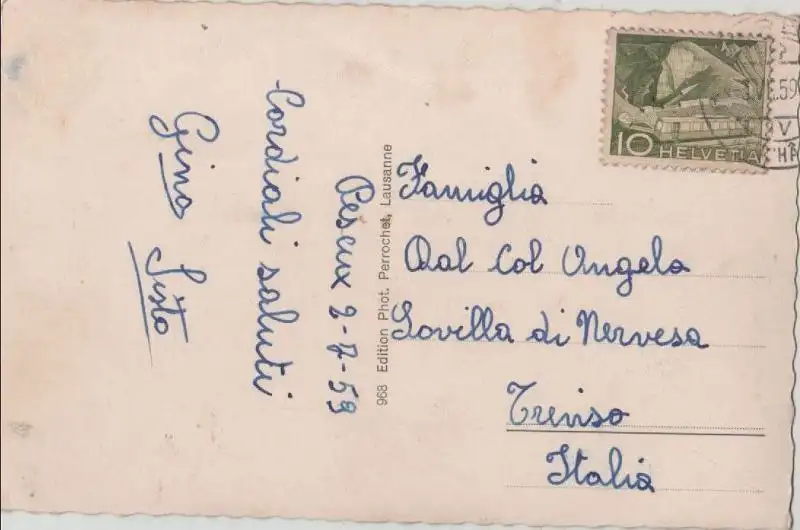 Peseux 2-7-59
Cordiali saluti
Gino
Sisto
968 Edition Phot. Perrochet, Lausanne
10 HELVETIA
Famiglia
Dal Col Angelo
Sovilla di Nervesa
Treviso
Italia